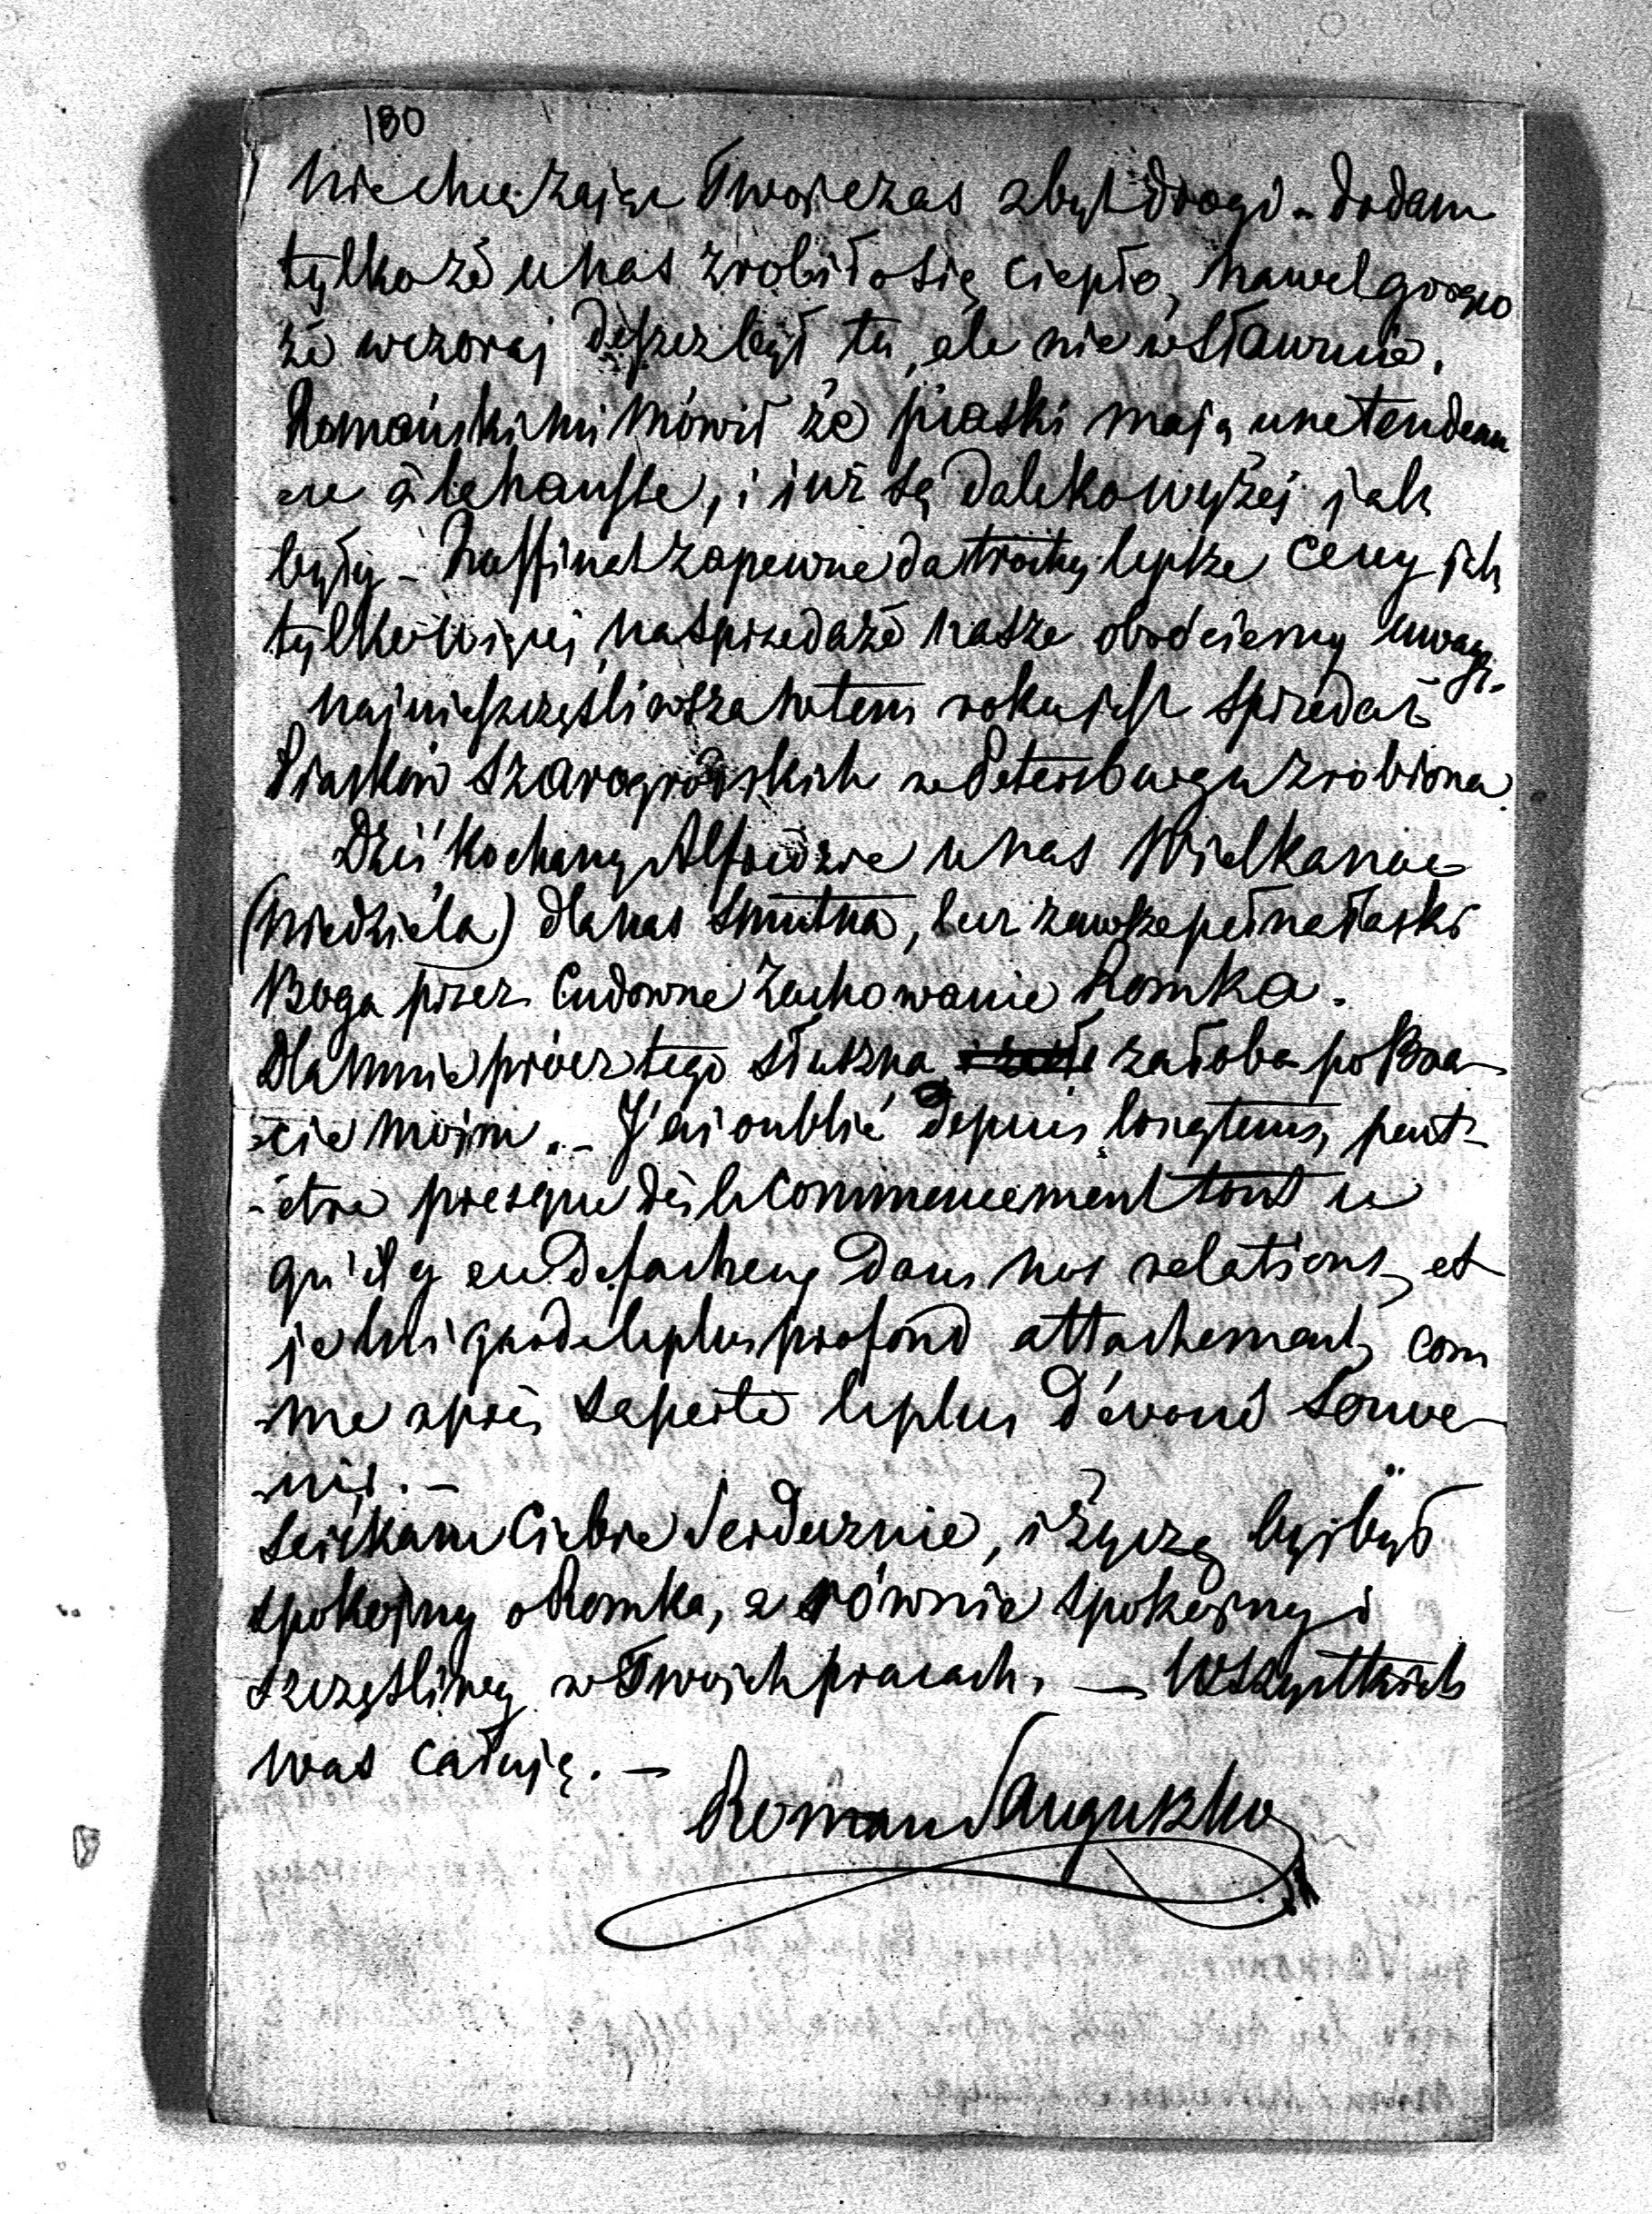 180
Nie chcąc zająć Twój czas zbyt drogi – dodam
tylko że u nas zrobiło się ciepło, nawet gorąco
że wczoraj deszcz był tu, ale nie w Sławucie.
Romański mi mówił że piaski mają une tendan
ce à la hausse, i już są daleko wyżej jak
były – Raffinat zapewne da trochę lepsze ceny jak
tylko więcej na sprzedaże nasze obróciemy uwagi.
Najnieszczęśliwsza w tem roku jest sprzedaż
Piasków Szarogrodskich w Petersburgu zrobiona.
Dziś Kochany Alfredzie u nas Wielkanoc
(niedziela) dla nas smutna, lecz zawsze pełna łaski
Boga przez cudowne zachowanie Romka.
Dla mnie prócz tego słuszna żałoba po Bra-
cie moim. – J'ai oublié depuis longtems, peut-
-être presque dès le commencement tout ce
qu'il y eu de facheux dans nos relations, et
je lui garde le plus profond attachement, com
-me après sa perte le plus dévoué souve-
nir. –
Sciskam Ciebie Serdecznie, i życzę byś był
spokojny o Romka, a równie spokojny i
szczęśliwy w Twoich pracach. – Wszystkich
was całuję. –
Roman Sanguszko